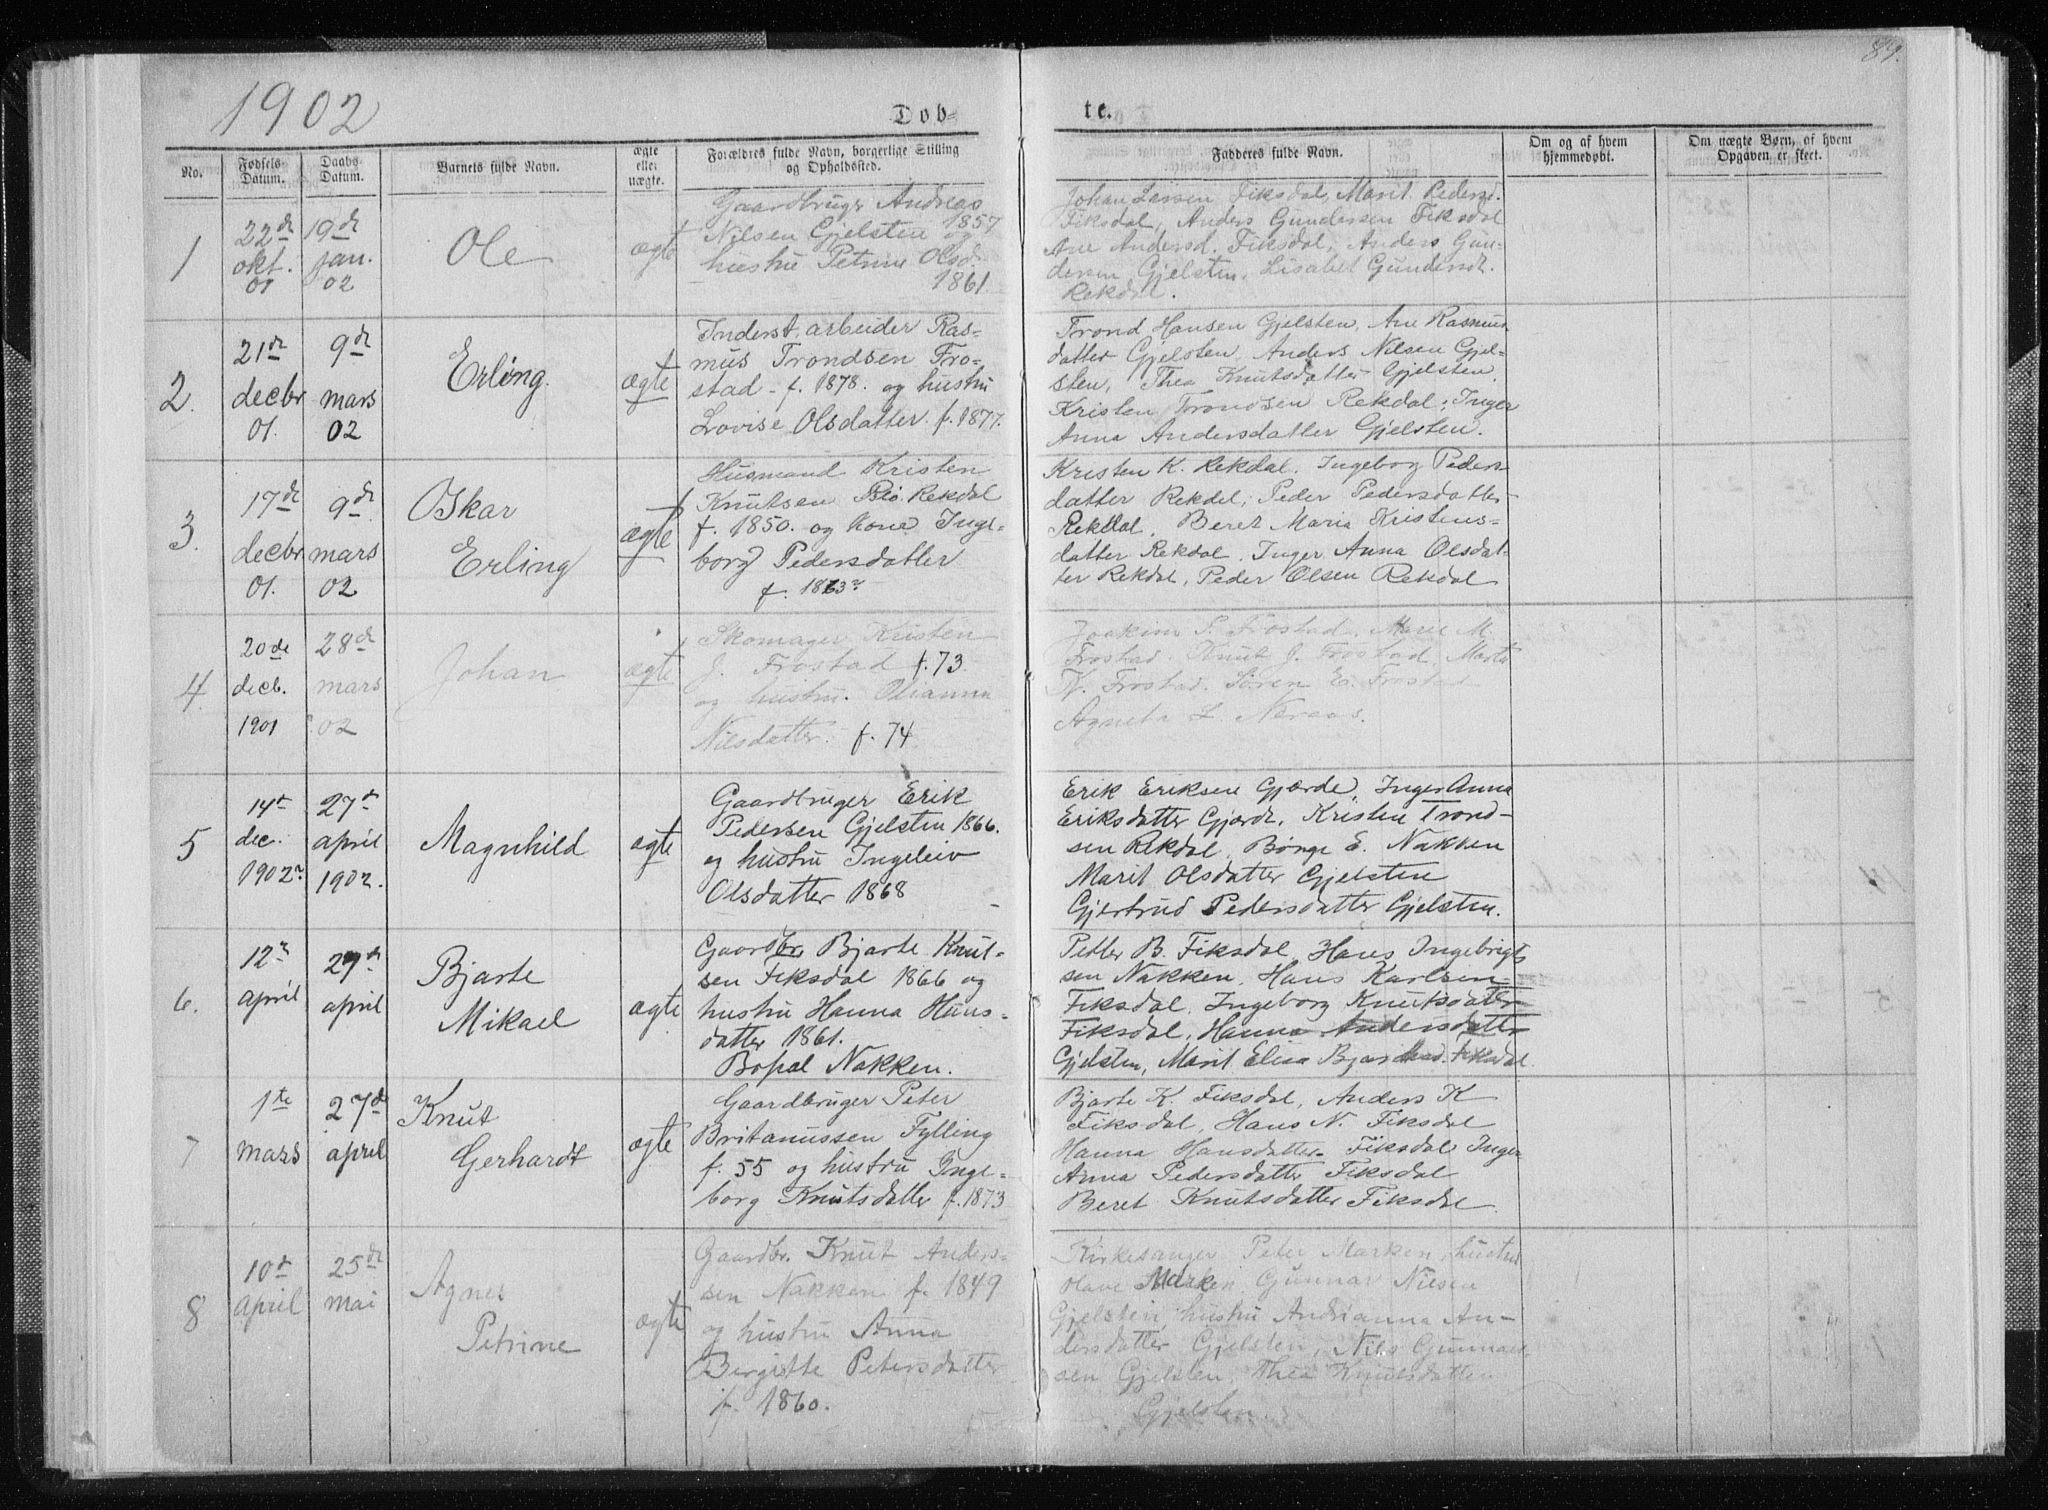 1902
87.
Døb-
te.
No.
Fødsels Datum.
Daabs Datum.
Barnets fulde Navn.
ægte eller uægte.
Forældres fulde Navn, borgerlige Stilling og Opholdssted.
Fadderes fulde Navn.
Om og af hvem hjemmedøbt.
Om uægte Børn, af hvem Opgaven er skeet.
1
22de okt. 01
19de jan. 02
Ole
ægte
Gaardbruger Andreas
Nilsen Gjelsten 1857 og
hustru Petrine Olsd.
1861.
Johan Larsen Fiksdal, Marit Pedersd.
Fiksdal, Anders Gundersen Fiksdal
Ane Andersd. Fiksdal, Anders Gun-
dersen Gjelsten, Lisabet Gundersd.
Rekdal.
2.
21de decbr 01.
9de mars 02
Erling.
ægte
Inderst, arbeider Ras-
mus Trondsen Fro-
stad - f. 1878. og hustru
Lovise Olsdatter f. 1877.
Trond Hansen Gjelsten, Ane Rasmus
datter Gjelsten, Anders Nilsen Gjel-
sten, Thea Knutsdatter Gjelsten,
Kristen Trondsen Rekdal, Inger
Anna Andersdatter Gjelsten.
3.
17de decbr 01.
9de mars 02
Oskar
Erling
ægte
Husmand Kristen
Knutsen Rekdal
f. 1850. og kone Inge-
borg Pedersdatter
f. 1863
Kristen K. Rekdal. Ingeborg Peders
datter Rekdal, Peder Pedersdatter
Rekdal, Beret Maria Kristens-
datter Rekdal, Inger Anna Olsdat
ter Rekdal, Peder Olsen Rekdal
4.
20de decb. 1901
28de mars 02
Johan
ægte
Skomager Kristen
J. Frostad f. 73
og hustru. Olianna
Nilsdatter. f. 74
Joakim S. Frostad, Marie M.
Frostad. Knut J. Frostad, Marta
K. Frostad. Søren E. Frostad
Agneta L. Neraas.
5
14de dec. 1902
27de april 1902.
Magnhild
ægte
Gaardbruger Erik
Pedersen Gjelsten 1866.
og hustru Ingeleiv
Olsdatter 1868
Erik Eriksen Gjærde, Inger Anna
Eriksdatter Gjærde, Kristen Trond-
sen Rekdal, Børge E. Nakken
Marit Olsdatter Gjelsten
Gjertrud Pedersdatter Gjelsten.
6.
12 april
27de april
Bjarte
Mikael
ægte
Gaardbr Bjarte Knut-
sen Fiksdal 1866 og
hustru Hanna Hans-
datter 1861.
Bopæl Nakken.
Petter B. Fiksdal, Hans Ingebrigt
sen Nakken, Hans Karlsen
Fiksdal, Ingeborg Knutsdatter
Fiksdal, Hanna Andersdatter
Gjelsten, Marit Elisa Fiksdal
7
1te mars
27de april
Knut
Gerhardt
ægte
Gaardbruger Peter
Britanussen Fylling
f. 55 og hustru Inge-
borg Knutsdatter f. 1873
Bjarte K. Fiksdal, Anders K
Fiksdal, Hans N. Fiksdal
Hanna Hansdatter Fiksdal Inger
Anna Pedersdatter Fiksdal
Beret Knutsdatter Fiksdal
8
10de april
25de mai
Agnes
Petrine
ægte
Gaardbr. Knut Anders-
sen Nakken f. 1849
og hustru Anna
Bergitte Petersdatter
f. 1860.
Kirkesanger Peter Marken, hustru
Olave Marken, Gunnar Nilsen
Gjelsten, hustru Andrianna An-
dersdatter Gjelsten, Nils Gunnar
sen Gjelsten, Thea Knutsdatter
Gjelsten